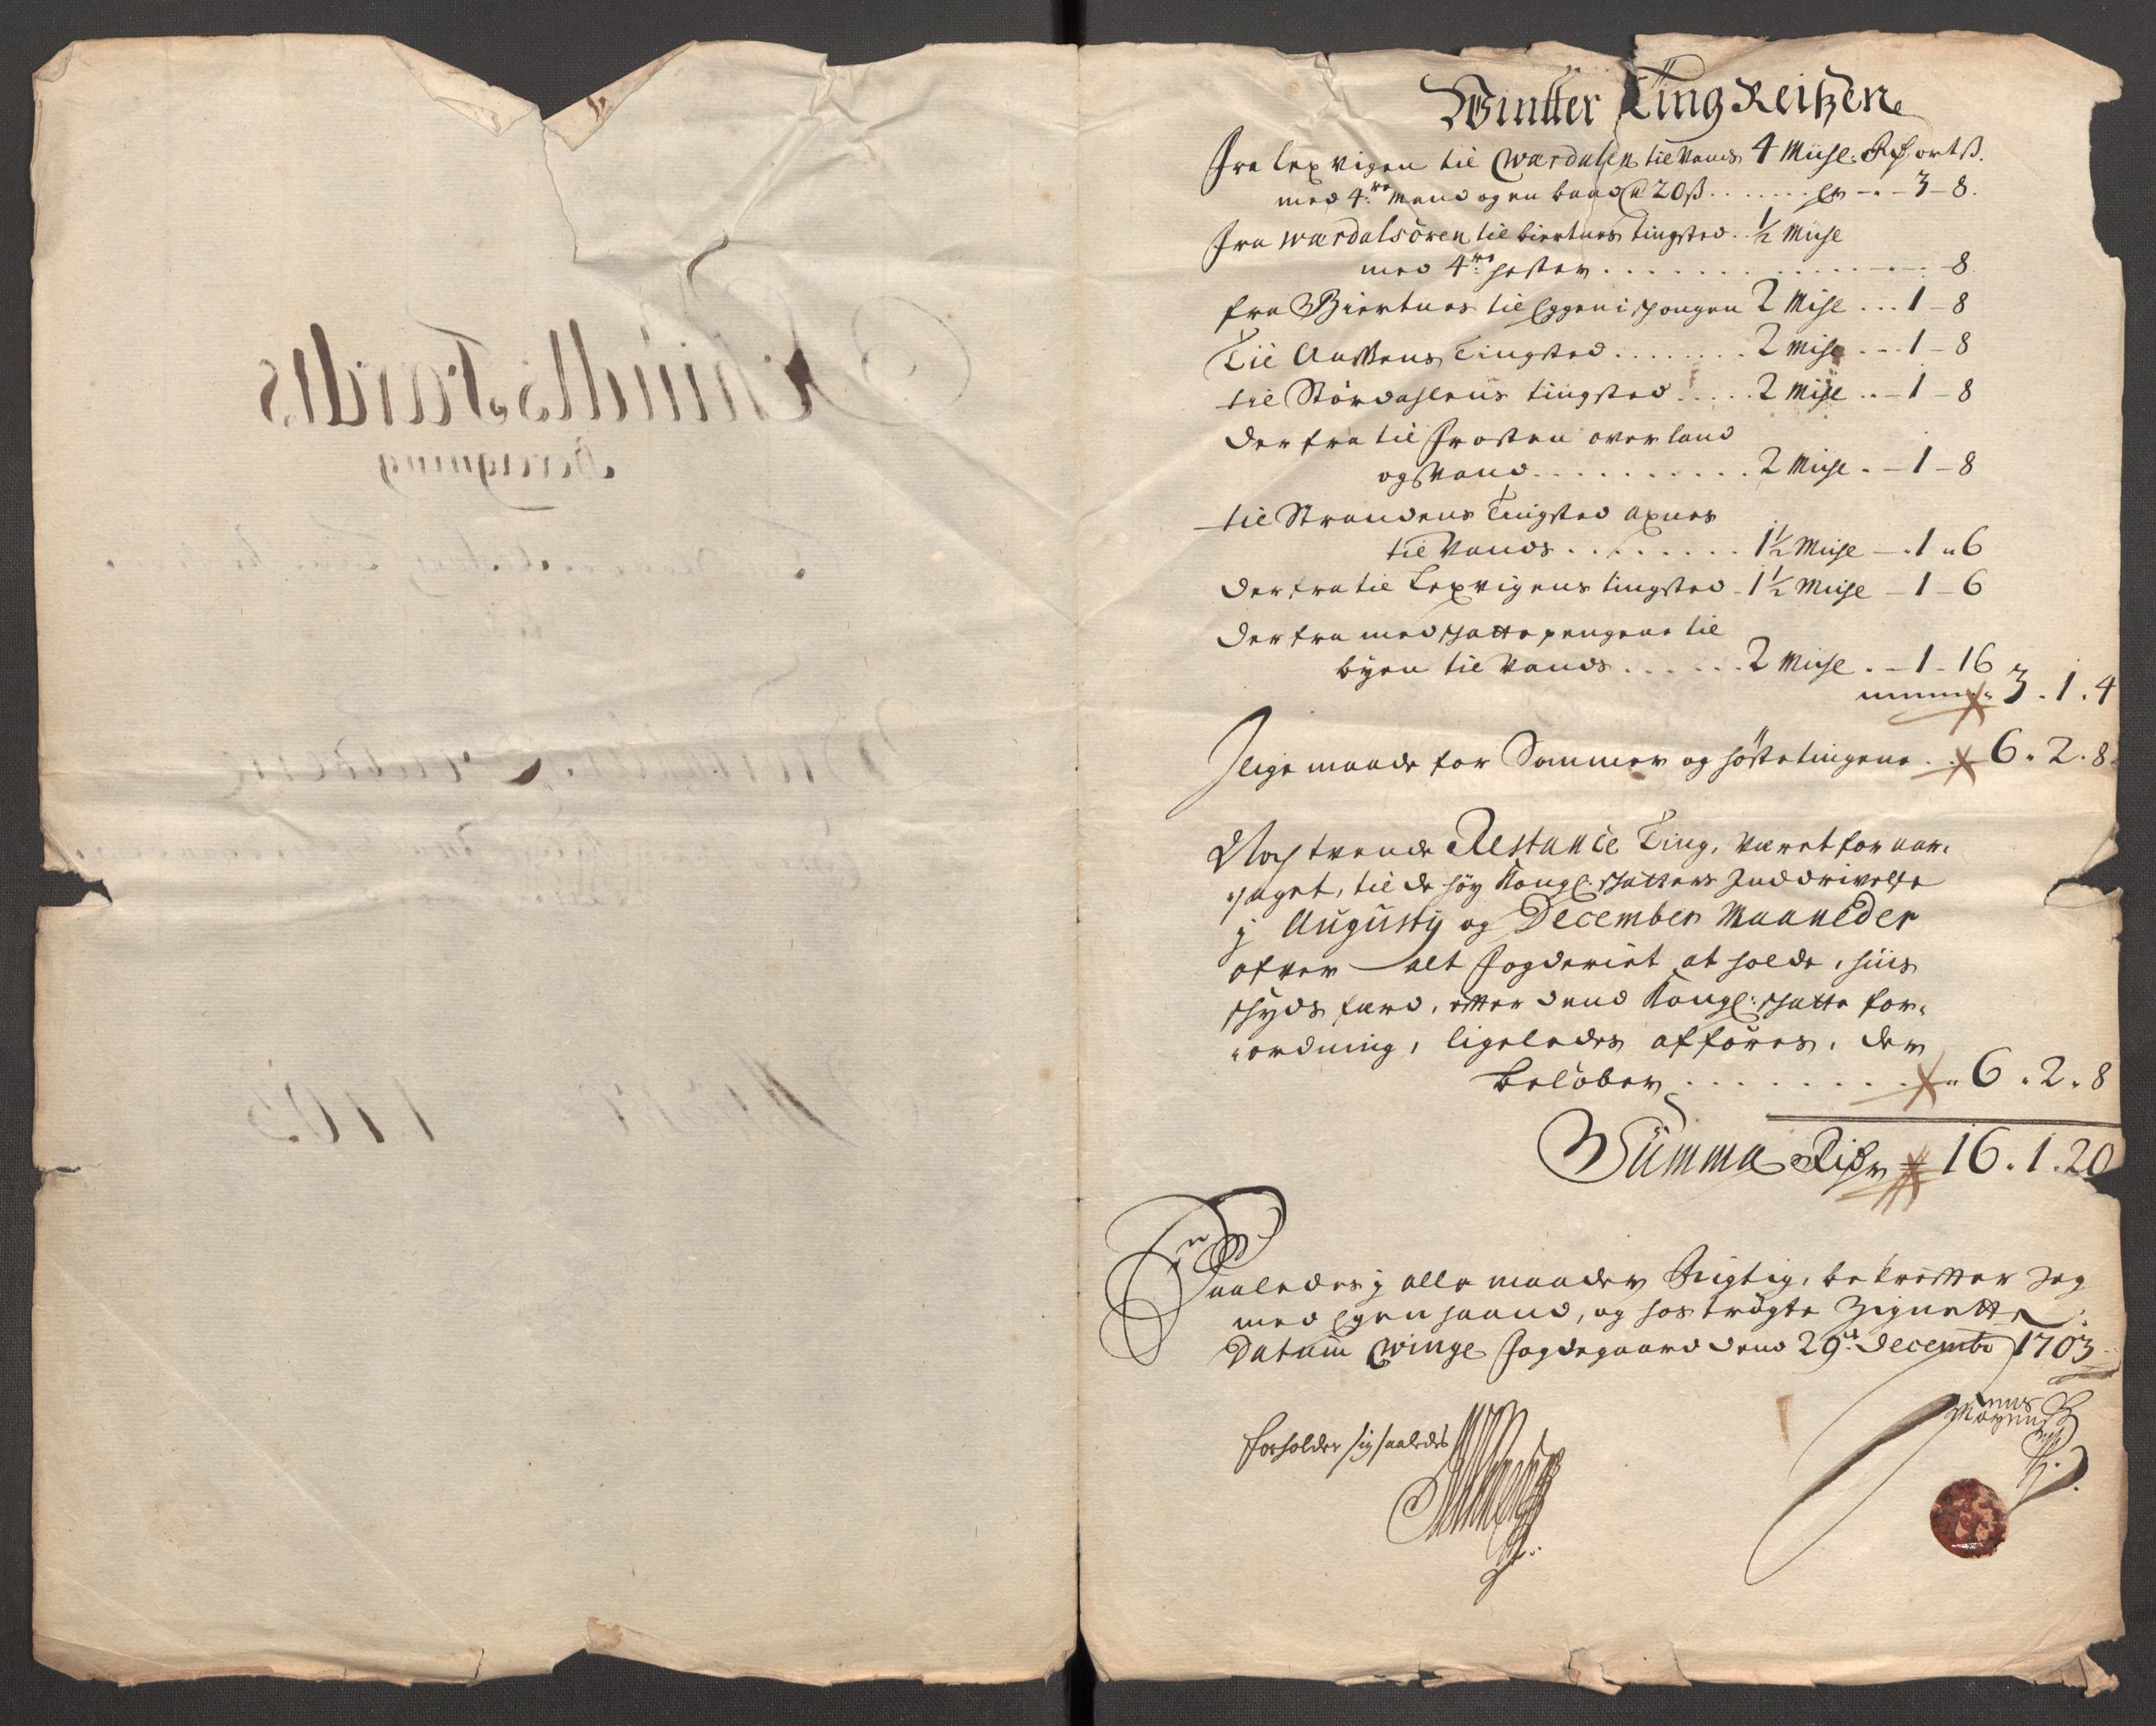 Wintter Ting Reitzen
Fra Lexvigen til Wardalen til Vands 4 Miihl: Rdr ortß.
med 4.re Mand og en baad a 20ß ...... er - - 3 - 8.
Fra Wardalsören til Biertnes tingsted. ½ Miihl
med 4.re hester .............. - 8
fra Biertnes til Eggen i Schougen 2 Mihl ... 1 - 8
Til Aussens Tingsted ........ 2 Mihl ... 1 - 8
til Stördahlens tingsted ..... 2 Mihl .. - 1 - 8
der fra til Frosten over land
og Vand .......... 2 Miihl . - 1 - 8
til Strandens Tingsted axnes
til Vands ........ 1½ Miihl - . 1 " 6
der fra til Lexvigens tingsted - 1½ Miihl - 1 - 6
der fra med schatte pengene til
byen til Vands ...... 2 Miihl . - 1 - 16
3 . 1 . 4
Jlige maade for Sommer og höstetingene . . 6 . 2 . 8
Noch tvende Restance Ting, været for aar¬
saget, til de höy Kongl. schatters Inddrivelse
j Augusty og December Maaneder
ofver alt Fogderiet at holde, hiis
schyds færd, effter dend Kongl: schatte for¬
ordning, ligeledes afföres, der
belöber ......... " 6 . 2 . 8
Summa Rixdr 16 . 1 . 20
Saaledes j alle maader Rigtig, bekreffter Jeg
med Egen haand, og hos trögte Zignette.
Datum Winge Fogdegaard dend 29.de decembr 1703
forholder sig saaledes
Skiudts Færdts
Beregning
1703